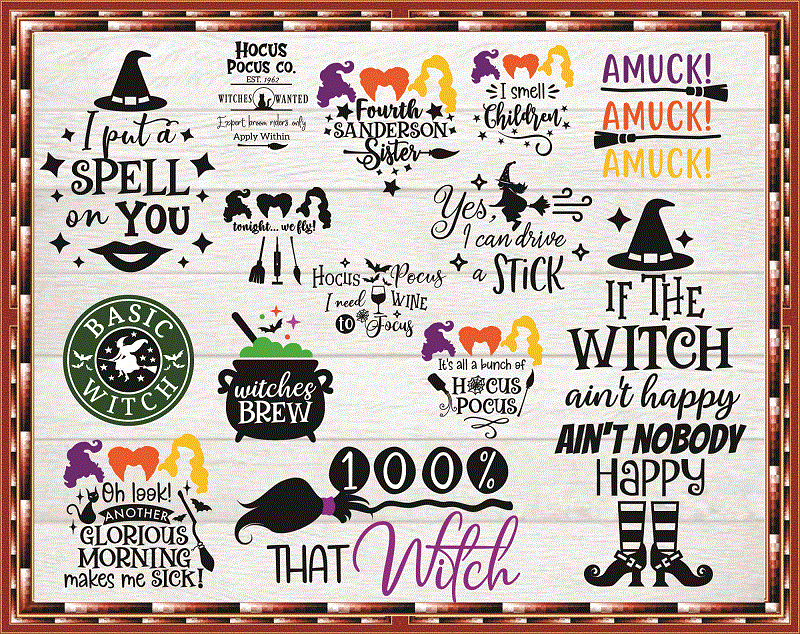 I put a
SPELL
on YOU
HOCUS
POCUS CO.
EST. 1962
WITCHES WANTED
Expert broom riders only
Apply Within
Fourth
SANDERSON
Sister
I smell
Children
AMUCK!
AMUCK!
AMUCK!
tonight... we fly!
Yes,
I can drive
a STICK
HOCUS POCUS
I need WINE
to Focus
IF THE
WITCH
ain't happy
AIN'T NOBODY
HAPPY
BASIC
WITCH
witches
BREW
It's all a bunch of
HOCUS
POCUS
Oh look!
ANOTHER
GLORIOUS
MORNING
makes me SICK!
100%
THAT Witch